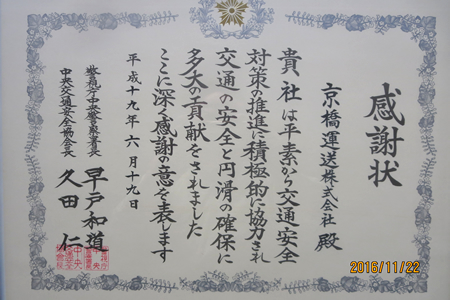 感謝状
京橋運送株式会社 殿
貴社は平素から交通安全
対策の推進に積極的に協力され
交通の安全と円滑の確保に
多大の貢献をされました
ここに深く感謝の意を表します
平成十九年六月十九日
警視庁中央警察署長 早戸和道
中央交通安全協会長 久田 仁
2016/11/22